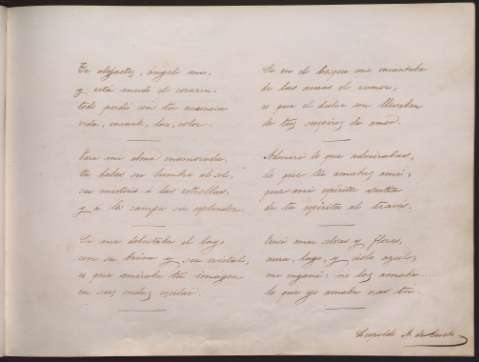 Te alejastes, ángel mio,
y está mudo el corazon:
todo perdió con tu ausencia
vida, encanto, luz, color.
Para mi alma enamorada,
tu dabas su lumbre al sol,
su misterio á las estrellas,
y á la campo su esplendor.
Si me deleitaba el lago
con su brisa y su cristal,
es que miraba tu imagen
en sus ondas
Si en el bosque me encantaba
de las aves el rumor,
es que el dulce son llevaban
de tus suspiros de amor.
Admiré lo que admirabas,
lo que tú amabas amé;
pues mi espíritu sentia
de tu espíritu al través.
Creí amar aves y flores,
aura, lago, y cielo azul;
me engañé: no los amaba
lo que yo amaba eras tú.
Leopoldo A. de